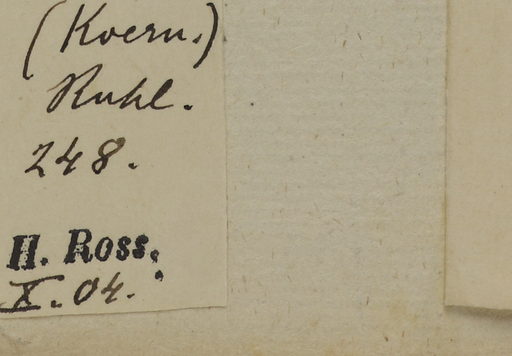 (Koern.)
Ruhl.
248.
H. Ross.
X. 04.